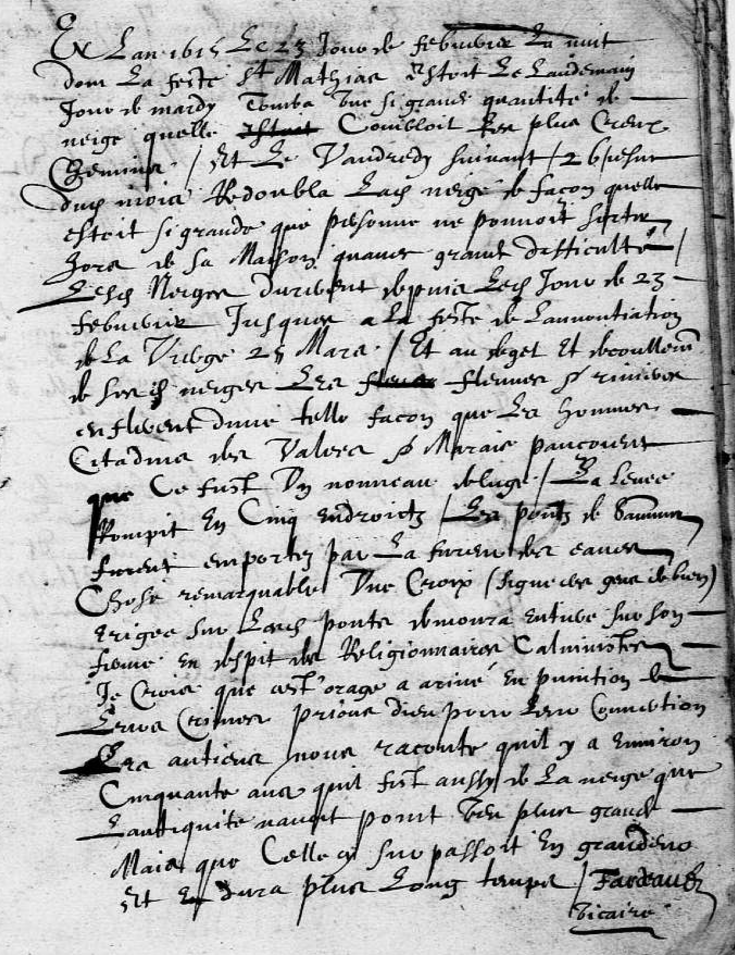 En Lan 1615 Le 23 Jour de febvrier La nuit
dont La feste St Mathias Estoit Le Landemain
Jour de mardy Tomba Une si grande quantité de
neige quelle Combloit Les plus Creux
Chemins / Et Le Vandredy suivant / 26
dud mois Redoubla Lad neige de facon quelle
estoit si grande que personne ne pouvoit sortir
hors de sa Maison qu'avec grande difficulté /
Lesd Neiges durerent depuis Led Jour de 23
febvrier Jusques a La feste de Lannontiation
de La Vierge 25 Mars / Et au deget Et decoullem
de ses d neiges Les fleuves & rivieres
enflerent dune telle facon que Les hommes
Citadins des Valees & Marais
que Ce fust Un nouveau deluge / La Levee
Rompit En Cinq endroictz / Les pontz de Saumur
furent emportez par La fureur des eaues
Chose remarquable Une Croix (signe des gens de bien)
erigee sur Lesd ponts demoura Entiere sur son
 En despit des Religionnaires Calvinistes
Je Crois que cest orage a arivé En punition de
Leurs Crimes prions dieu pour Leur Convertion
Les antiens nous raconte quil y a Environ
Cinquante ans quil fist aussy de La neige que
Lantiquite navoit point Veu plus grande
Mais que Celle cy surpassoit En grandeur
Et En dura plus Long temps / Fardeau
Vicaire